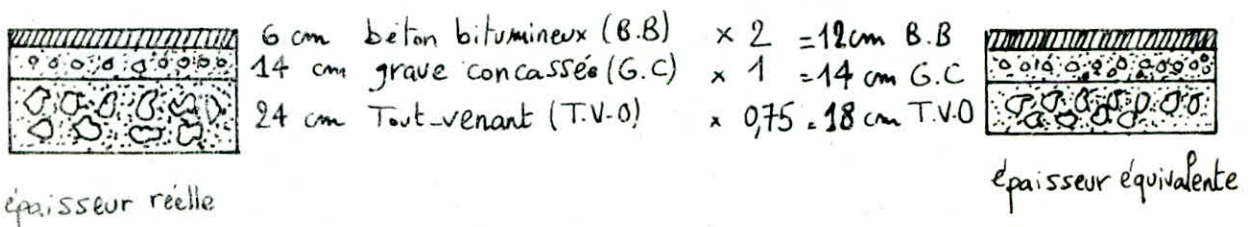 6 cm béton bitumineux (B.B) × 2 =12cm B.B
14 cm grave concassée (G.C) × 1 =14 cm G.C
24 cm Tout-venant (T.V-O) × 0,75 = 18 cm T.V.O
épaisseur réelle
épaisseur équivalente